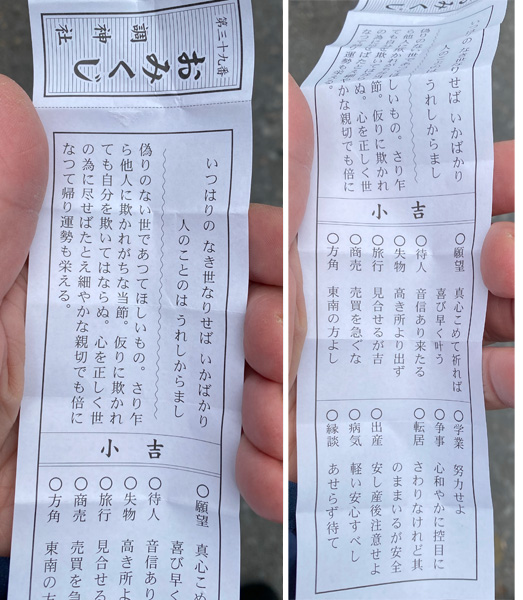 第三十九番
調神社
おみくじ
いつはりの なき世なりせば いかばかり
人のことのは うれしからまし
偽りのない世であつてほしいもの。さり乍
ら他人に欺かれがちな当節。仮りに欺かれ
ても自分を欺いてはならぬ。心を正しく世
の為に尽せばたとえ細やかな親切でも倍に
なつて帰り運勢も栄える。
小吉
○願望 真心こめ
喜び早
○待人 音信あり
○失物 高き所よ
○旅行 見合せる
○商売 売買を急
○方角 東南の方
いつはりの なき世なりせば いかばかり
人のことのは うれしからまし
偽りのない世であつてほしいもの。さり乍
ら他人に欺かれがちな当節。仮りに欺かれ
ても自分を欺いてはならぬ。心を正しく世
の為に尽せばたとえ細やかな親切でも倍に
なつて帰り運勢も栄える。
小吉
○願望 真心こめて祈れば
喜び早く叶う
○待人 音信あり来たる
○失物 高き所より出ず
○旅行 見合せるが吉
○商売 売買を急ぐな
○方角 東南の方よし
○学業 努力せよ
○争事 心和やかに控目に
○転居 さわりなけれど其
のままいるが安全
○出産 安し産後注意せよ
○病気 軽い安心すべし
○縁談 あせらず待て